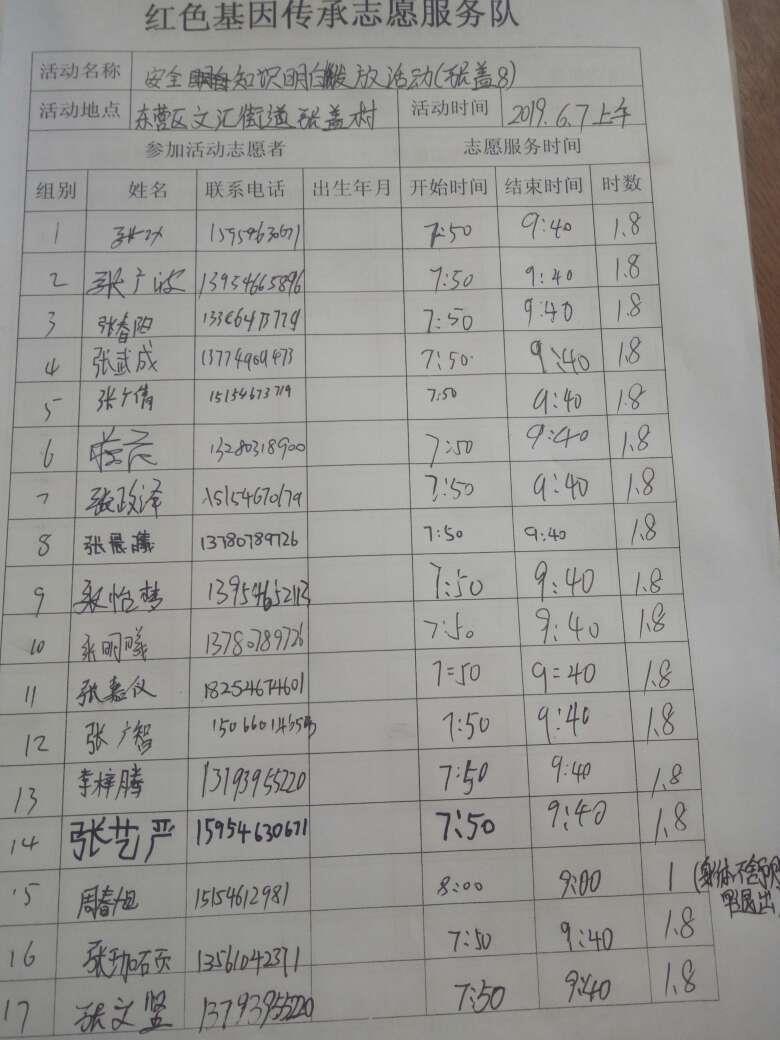 红色基因传承志愿服务队
活动名称 安全知识明白 放活动(张盖8)
活动地点 东营区文汇街道张盖村 活动时间 2019.6.7上午
参加活动志愿者 志愿服务时间
组别 姓名 联系电话 出生年月 开始时间 结束时间 时数
1 15954630671 7:50 9:40 1.8
2 张广波 13954665896 7:50 9:40 1.8
3 张春阳 7:50 9:40 1.8
4 张武成 7:50 9:40 1.8
5 张广倩 15154673719 7:50 9:40 1.8
6 13280318900 7:50 9:40 1.8
7 张政泽 15154670179 7:50 9:40 1.8
8 张晨曦 13780789726 7:50 9:40 1.8
9 张怡梦 13954652113 7:50 9:40 1.8
10 张明曦 13780789726 7:50 9:40 1.8
11 张嘉仪 18254674601 7:50 9:40 1.8
12 张广智 7:50 9:40 1.8
13 李梓腾 13793955220 7:50 9:40 1.8
14 张艺严 15954630671 7:50 9:40 1.8
15 周春旭 15154612981 8:00 9:00 1 (身体不舒服
早退出)
16 张珈硕 13561042371 7:50 9:40 1.8
17 张文盟 13793955220 7:50 9:40 1.8